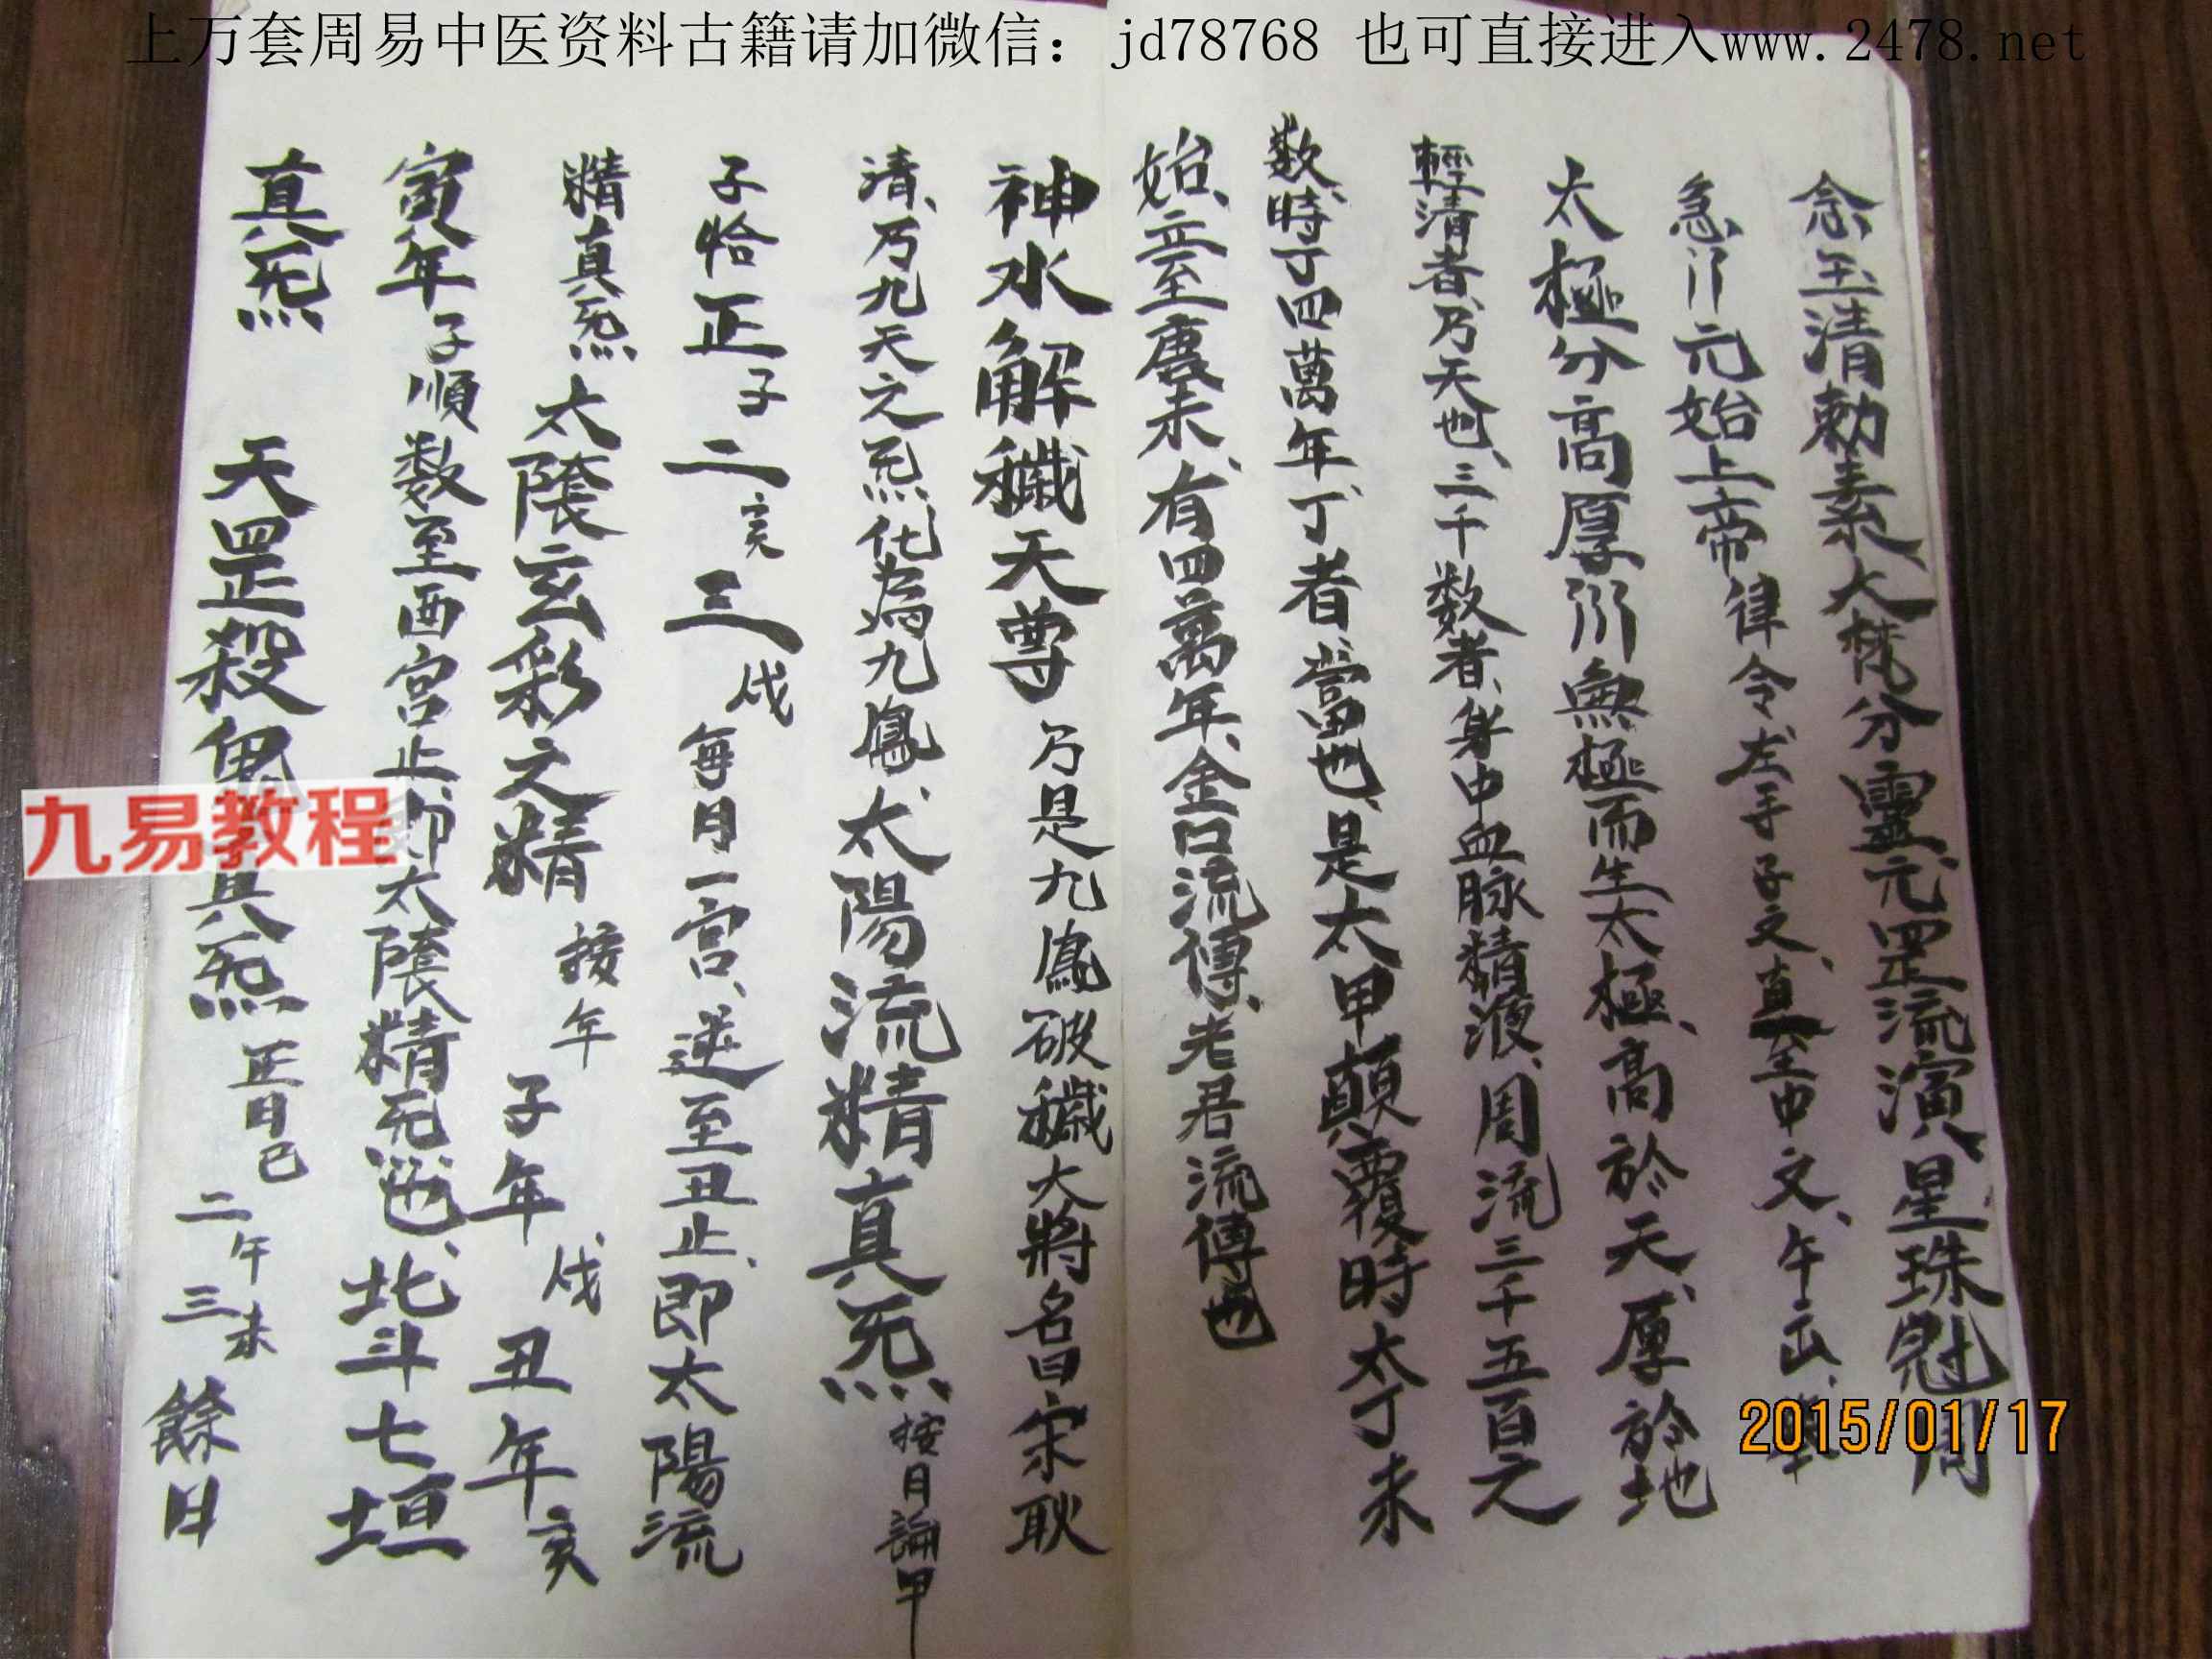 上万套周易中医资料古籍请加微信：jd78768 也可直接进入www.2478.net
念玉清勅素大梵分靈元罡流演星珠冠周
急元始上帝律令左手子文真至中文午
太極分高厚無極而生太極高於天厚於地
輕清者乃天也三千数者身中血脉精液周流三千五百之
数時丁四萬年丁者當也是太甲顛覆時太丁未
始立至唐末有四萬年金口流傳老君流傳也
神水解穢天尊乃是九鳳破穢大將名曰宋耿
清乃九天之炁化為九鳳太陽流精真炁按月論甲
子恰正子二亥三戌每月一宮逆至丑止即太陽流
精真炁太陰玄彩之精按年子年戌丑年亥
寅年子順数至酉宮止即太陰精炁也北斗七垣
真炁 天罡殺鬼真炁正月巳二午三未餘
九易教程
2015/01/17